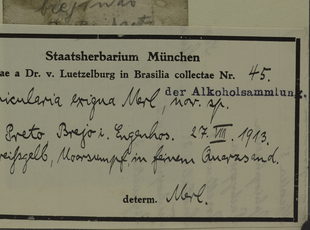 Staatsherbarium München
ae a Dr. v. Luetzelburg in Brasilia collectae Nr. 45.
der Alkoholsammlung.
icularia exigua Merl, nov. sp.
Preto Brejo i. Engenhos. 27. VIII. 1913
eißgelb, Moorsumpf in feinem Quarzsand.
determ. Merl.